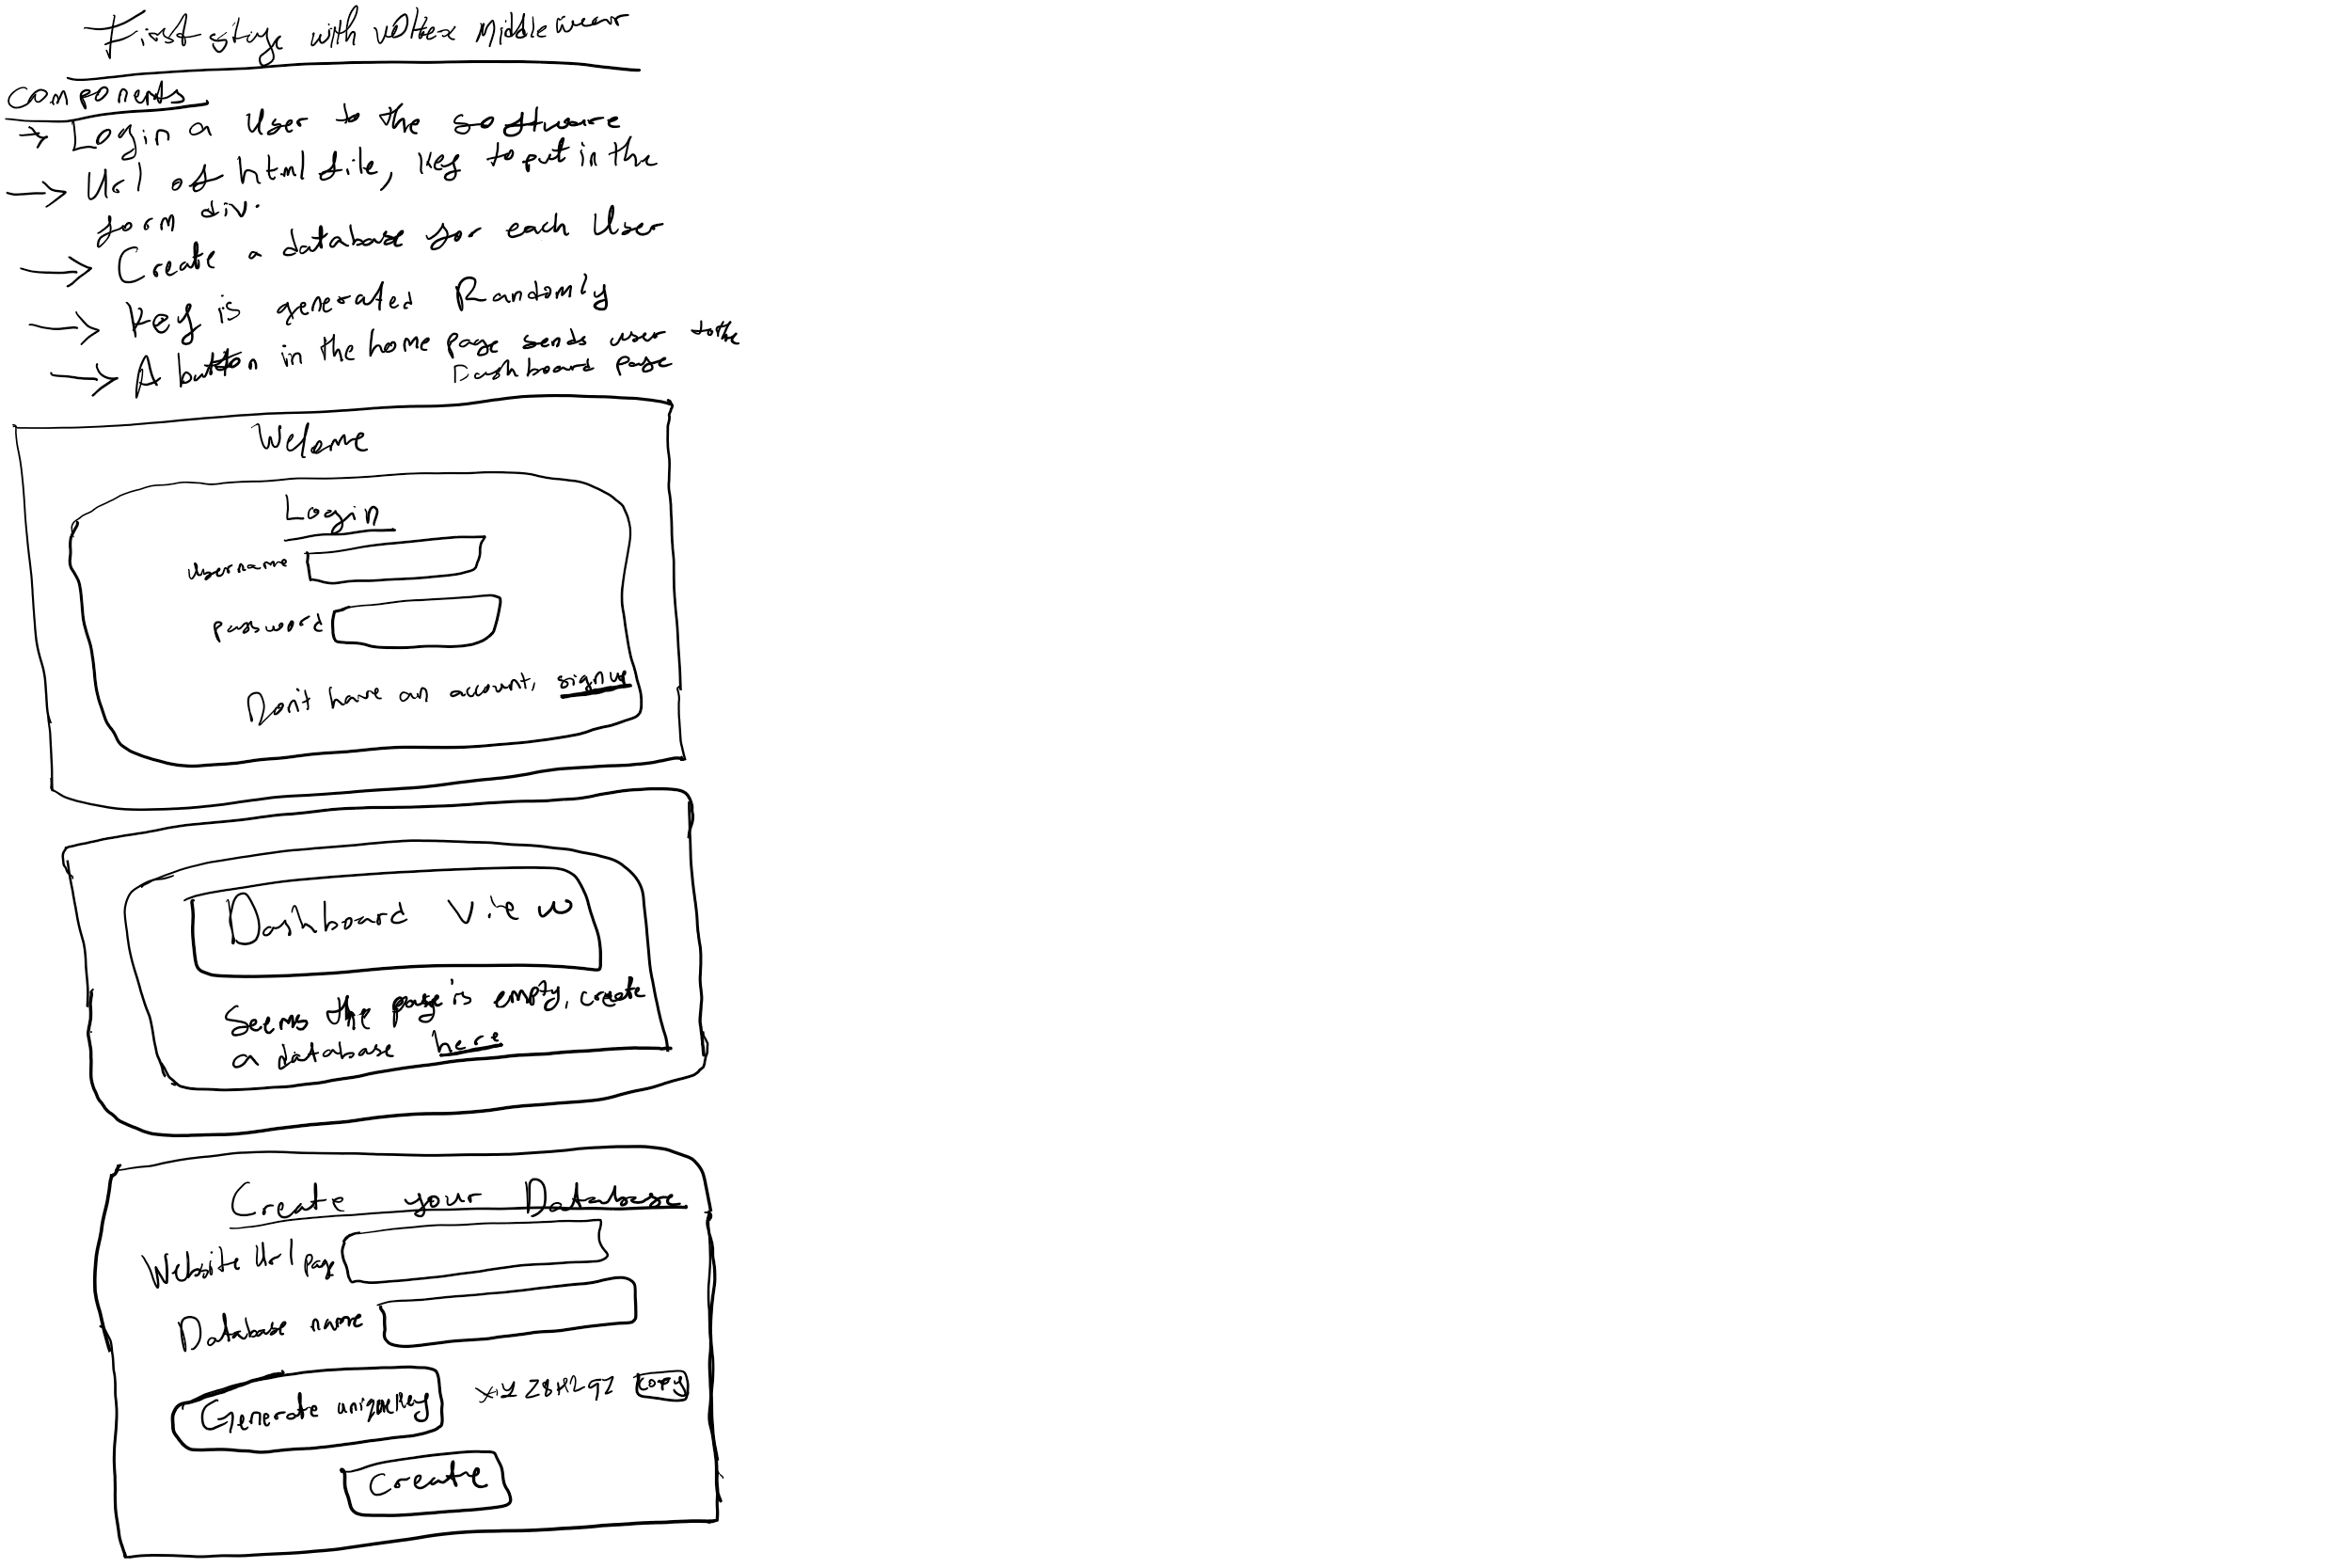 First stage with voltex Middlewear
Components
→ Login a User to the software
→ Url of html file, key to put in the
form div.
→ Create a database for each User
→ Key is generated Randomly
→ A button in the home page sends user to the
Dashboard page
Welome
Login
Username
password
Don't have an account, signup
Dashboard View
Seems the page is empty, create
a database here
Create your Database
Website Url page
Database name
Generate unique key
copy
Create